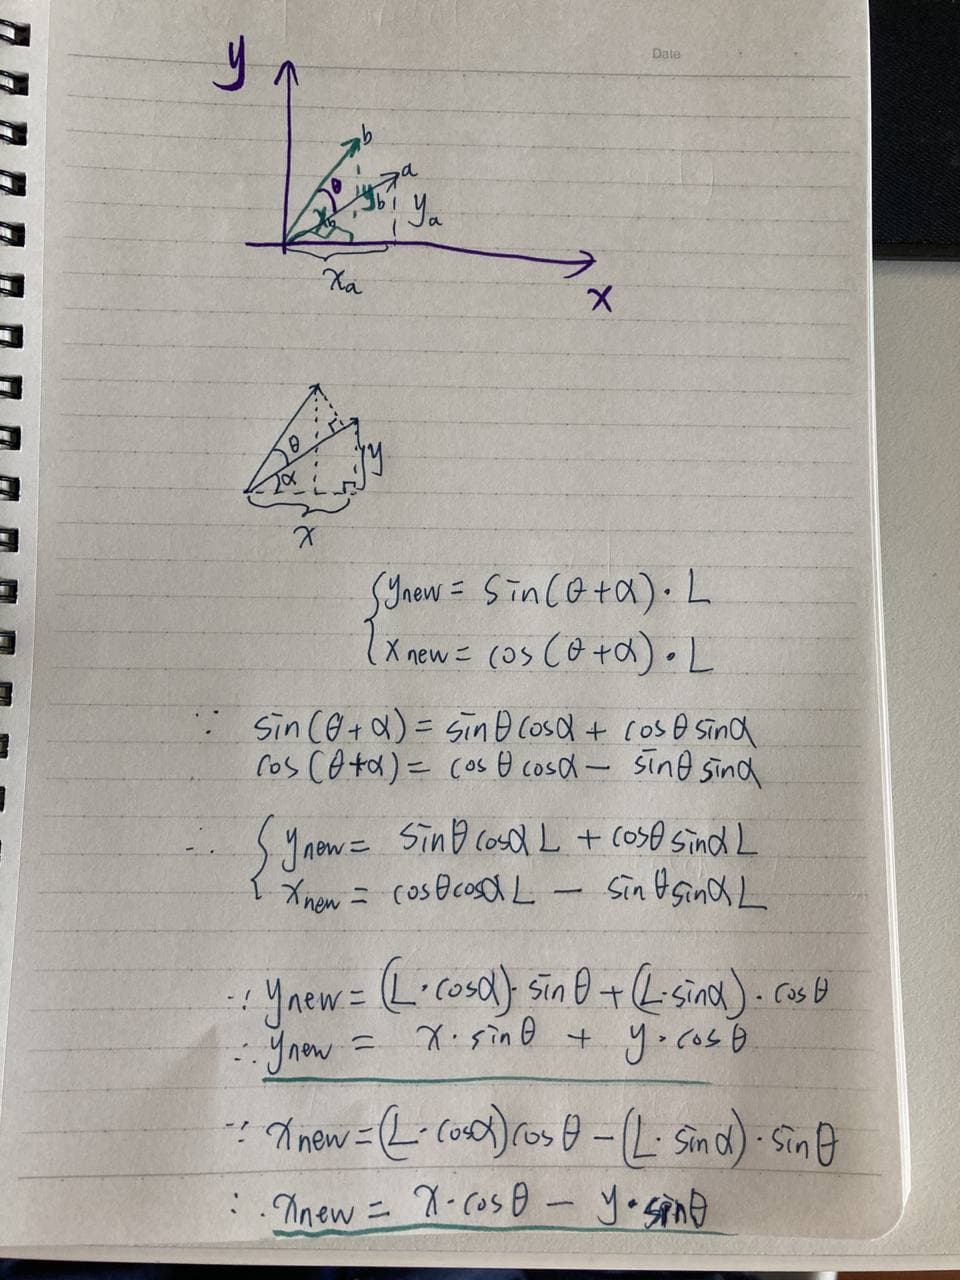 Date
y
b
θ
a
x_b
y_b
y_a
x_a
x
θ
r
α
y
x
{ y_new = sin(θ+α)·L
x_new = cos(θ+α)·L
∵ sin(θ+α) = sinθcosα + cosθsinα
cos(θ+α) = cosθcosα − sinθsinα
∴ { y_new = sinθcosαL + cosθsinαL
x_new = cosθcosαL − sinθsinαL
∵ y_new = (L·cosα)·sinθ + (L·sinα)·cosθ
∴ y_new = x·sinθ + y·cosθ
∵ x_new = (L·cosα)cosθ − (L·sinα)·sinθ
∴ x_new = x·cosθ − y·sinθ